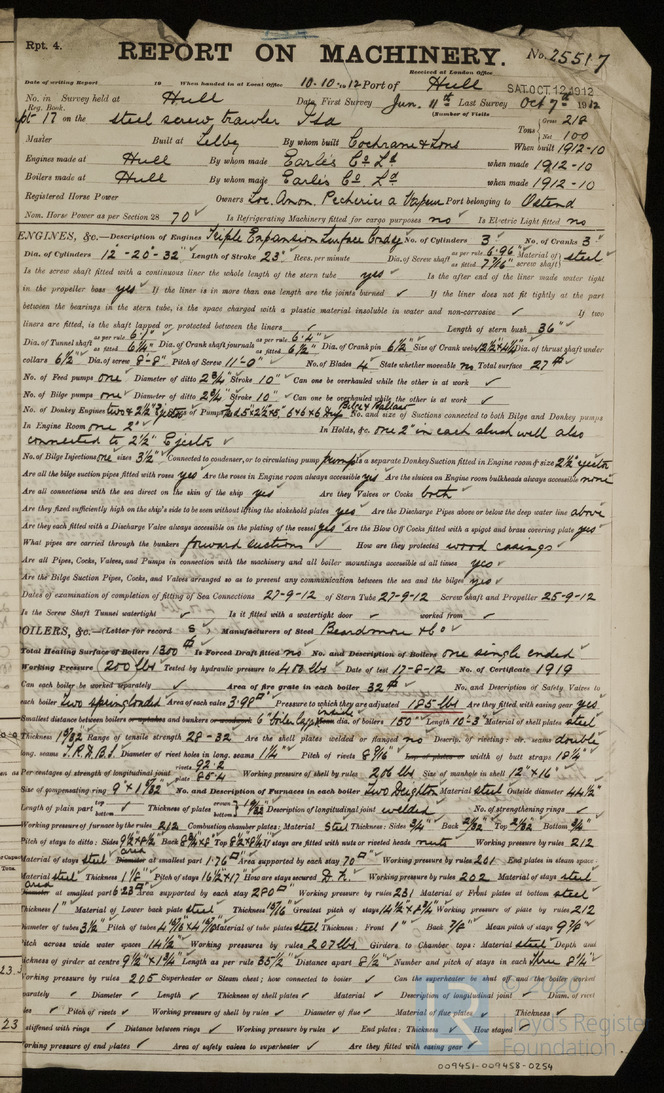 Rpt. 4.
REPORT ON MACHINERY.
No. 25517
Received at London Office
SAT. OCT. 12 1912
Date of writing Report 19 When handed in at Local Office 10.10.1912 Port of Hull
No. in Survey held at Hull Date, First Survey Jun. 11th Last Survey Oct 7th 1912
Reg. Book.
(Number of Visits
17 on the steel screw trawler Ida
Tons Gross 218
Net 100
Master Built at Selby By whom built Cochrane & Sons When built 1912-10
Engines made at Hull By whom made Earle's Co. Ld when made 1912-10
Boilers made at Hull By whom made Earle's Co. Ld when made 1912-10
Registered Horse Power Owners Soc. Anon. Pecheries a Vapeur Port belonging to Ostend
Nom. Horse Power as per Section 28 70 Is Refrigerating Machinery fitted for cargo purposes no Is Electric Light fitted no
ENGINES, &c.—Description of Engines Triple Expansion Surface Condsg No. of Cylinders 3 No. of Cranks 3
Dia. of Cylinders 12"-20"-32" Length of Stroke 23" Revs. per minute Dia. of Screw shaft as per rule 6.96" as fitted 7 7/16" Material of screw shaft steel
Is the screw shaft fitted with a continuous liner the whole length of the stern tube yes Is the after end of the liner made water tight
in the propeller boss yes If the liner is in more than one length are the joints burned If the liner does not fit tightly at the part
between the bearings in the stern tube, is the space charged with a plastic material insoluble in water and non-corrosive If two
liners are fitted, is the shaft lapped or protected between the liners Length of stern bush 36"
Dia. of Tunnel shaft as per rule as fitted Dia. of Crank shaft journals as per rule 6.4" as fitted 6 1/2" Dia. of Crank pin 6 1/2" Size of Crank webs Dia. of thrust shaft under
collars 6 1/2" Dia. of screw 8'-8" Pitch of Screw 11'-0" No. of Blades 4 State whether moveable no Total surface 27
No. of Feed pumps one Diameter of ditto 2 3/4" Stroke 10" Can one be overhauled while the other is at work
No. of Bilge pumps one Diameter of ditto 2 3/4" Stroke 10" Can one be overhauled while the other is at work
No. of Donkey Engines Sizes of Pumps No. and size of Suctions connected to both Bilge and Donkey pumps
In Engine Room one 2" In Holds, &c. one 2" in each slush well also
connected to 2 1/2" Ejector
No. of Bilge Injections one sizes 3 1/2" Connected to condenser, or to circulating pump pump Is a separate Donkey Suction fitted in Engine room & size 2 1/2" ejector
Are all the bilge suction pipes fitted with roses yes Are the roses in Engine room always accessible yes Are the sluices on Engine room bulkheads always accessible none
Are all connections with the sea direct on the skin of the ship yes Are they Valves or Cocks both
Are they fixed sufficiently high on the ship's side to be seen without lifting the stokehold plates yes Are the Discharge Pipes above or below the deep water line above
Are they each fitted with a Discharge Valve always accessible on the plating of the vessel yes Are the Blow Off Cocks fitted with a spigot and brass covering plate yes
What pipes are carried through the bunkers forward suctions How are they protected wood casings
Are all Pipes, Cocks, Valves, and Pumps in connection with the machinery and all boiler mountings accessible at all times yes
Are the Bilge Suction Pipes, Cocks, and Valves arranged so as to prevent any communication between the sea and the bilges yes
Dates of examination of completion of fitting of Sea Connections 27-9-12 of Stern Tube 27-9-12 Screw shaft and Propeller 25-9-12
Is the Screw Shaft Tunnel watertight Is it fitted with a watertight door worked from
OILERS, &c.—(Letter for record S) Manufacturers of Steel Beardmore & Co
Total Heating Surface of Boilers 1300 Is Forced Draft fitted no No. and Description of Boilers one single ended
Working Pressure 200 lbs Tested by hydraulic pressure to 400 lbs Date of test 17-8-12 No. of Certificate 1919
Can each boiler be worked separately Area of fire grate in each boiler 32 No. and Description of Safety Valves to
each boiler two spring loaded Area of each valve 3.98 Pressure to which they are adjusted 185 lbs Are they fitted with easing gear yes
Smallest distance between boilers or uptakes and bunkers or woodwork 6" dia. of boilers 150" Length 10'-3" Material of shell plates steel
Thickness 1 9/32 Range of tensile strength 28-32 Are the shell plates welded or flanged no Descrip. of riveting: cir. seams double
long. seams T.R.D.B.S. Diameter of rivet holes in long. seams 1 1/4" Pitch of rivets Lap of plates or width of butt straps 18 1/4"
Percentages of strength of longitudinal joint rivets 92.2 plate 85.4 Working pressure of shell by rules 206 lbs Size of manhole in shell 12" x 16"
Size of compensating ring 9" x 1 9/32" No. and Description of Furnaces in each boiler two Deighton Material steel Outside diameter 44 1/2"
Length of plain part top bottom Thickness of plates crown bottom Description of longitudinal joint welded No. of strengthening rings
Working pressure of furnace by the rules 212 Combustion chamber plates: Material steel Thickness: Sides 3/4" Back Top Bottom 3/4"
Pitch of stays to ditto: Sides Back Top If stays are fitted with nuts or riveted heads nuts Working pressure by rules 212
Material of stays steel Area at smallest part 1.76 Area supported by each stay 70 Working pressure by rules 201 End plates in steam space
Material steel Thickness 1 1/8" Pitch of stays 16 1/2 x 17 How are stays secured Working pressure by rules 202 Material of stays steel
Area at smallest part 6.23 Area supported by each stay 280 Working pressure by rules 231 Material of Front plates at bottom steel
Thickness 1" Material of Lower back plate steel Thickness 15/16" Greatest pitch of stays Working pressure of plate by rules 212
Diameter of tubes 3 1/2" Pitch of tubes Material of tube plates steel Thickness: Front 1" Back 7/8" Mean pitch of stays 9 7/8"
Pitch across wide water spaces 14 1/2" Working pressures by rules 207 lbs Girders to Chamber tops: Material steel Depth and
thickness of girder at centre 9 1/2" x 1 3/4" Length as per rule 35 1/2" Distance apart 8 1/2" Number and pitch of stays in each three 8 1/4"
Working pressure by rules 205 Superheater or Steam chest; how connected to boiler Can the superheater be shut off and the boiler worked
separately Diameter Length Thickness of shell plates Material Description of longitudinal joint Diam. of rivet
Pitch of rivets Working pressure of shell by rules Diameter of flue Material of flue plates Thickness
stiffened with rings Distance between rings Working pressure by rules End plates: Thickness How stayed
Working pressure of end plates Area of safety valves to superheater Are they fitted with easing gear
© 2020
Lloyd's Register
Foundation
009451-009458-0254